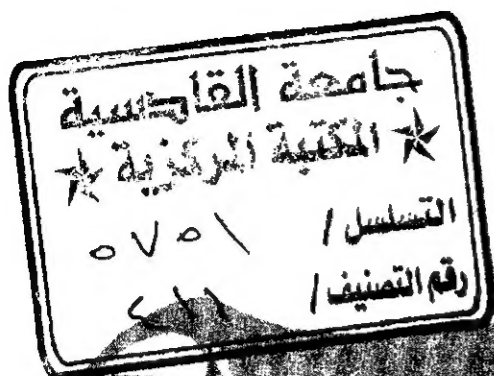 جامعة القادسية
★ المكتبة المركزية ★
التسلسل / ٥٧٥١
رقم التصنيف / ٤١١